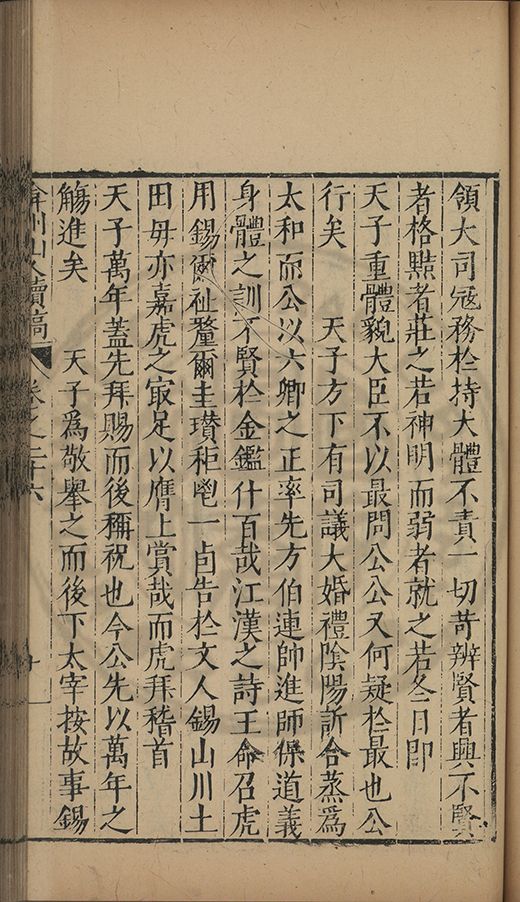 領大司冦務於持大體不責一切苛辨賢者興不賢
者格點者莊之若神明而弱者就之若冬日即
天子重體貌大臣不以最問公公又何疑於最也公
行矣　天子方下有司議大婚禮陰陽訢合蒸為
太和而公以六卿之正率先方伯連帥進師保道義
身體之訓不賢於金鑑什百哉江漢之詩王命召虎
用錫爾祉釐爾圭瓚秬鬯一卣告於文人錫山川土
田毋亦嘉虎之㝡足以膺上賞哉而虎拜稽首
天子萬年蓋先拜賜而後稱祝也今公先以萬年之
觴進矣　天子爲敬舉之而後下太宰按故事錫
弇州山人續稿　卷之二十六　十一